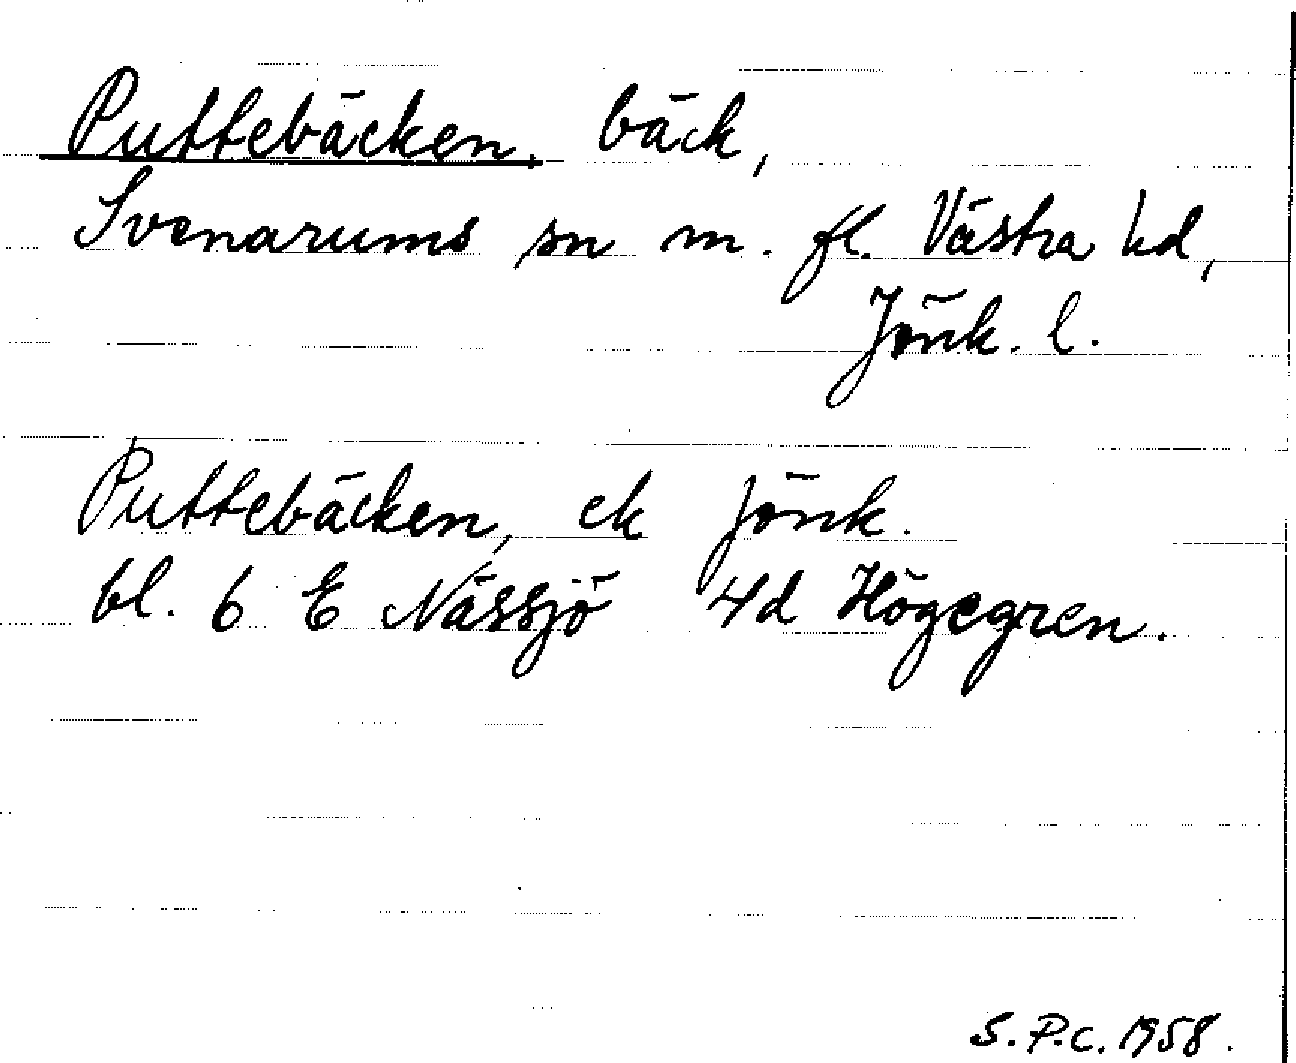 Puttebäcken, bäck,
Svenarums sn m. fl. Västra hd,
Jönk. l.
Puttebäcken, ek Jönk.
bl. 6 E Nässjö 4d Högegren.
S.P.C. 1958.